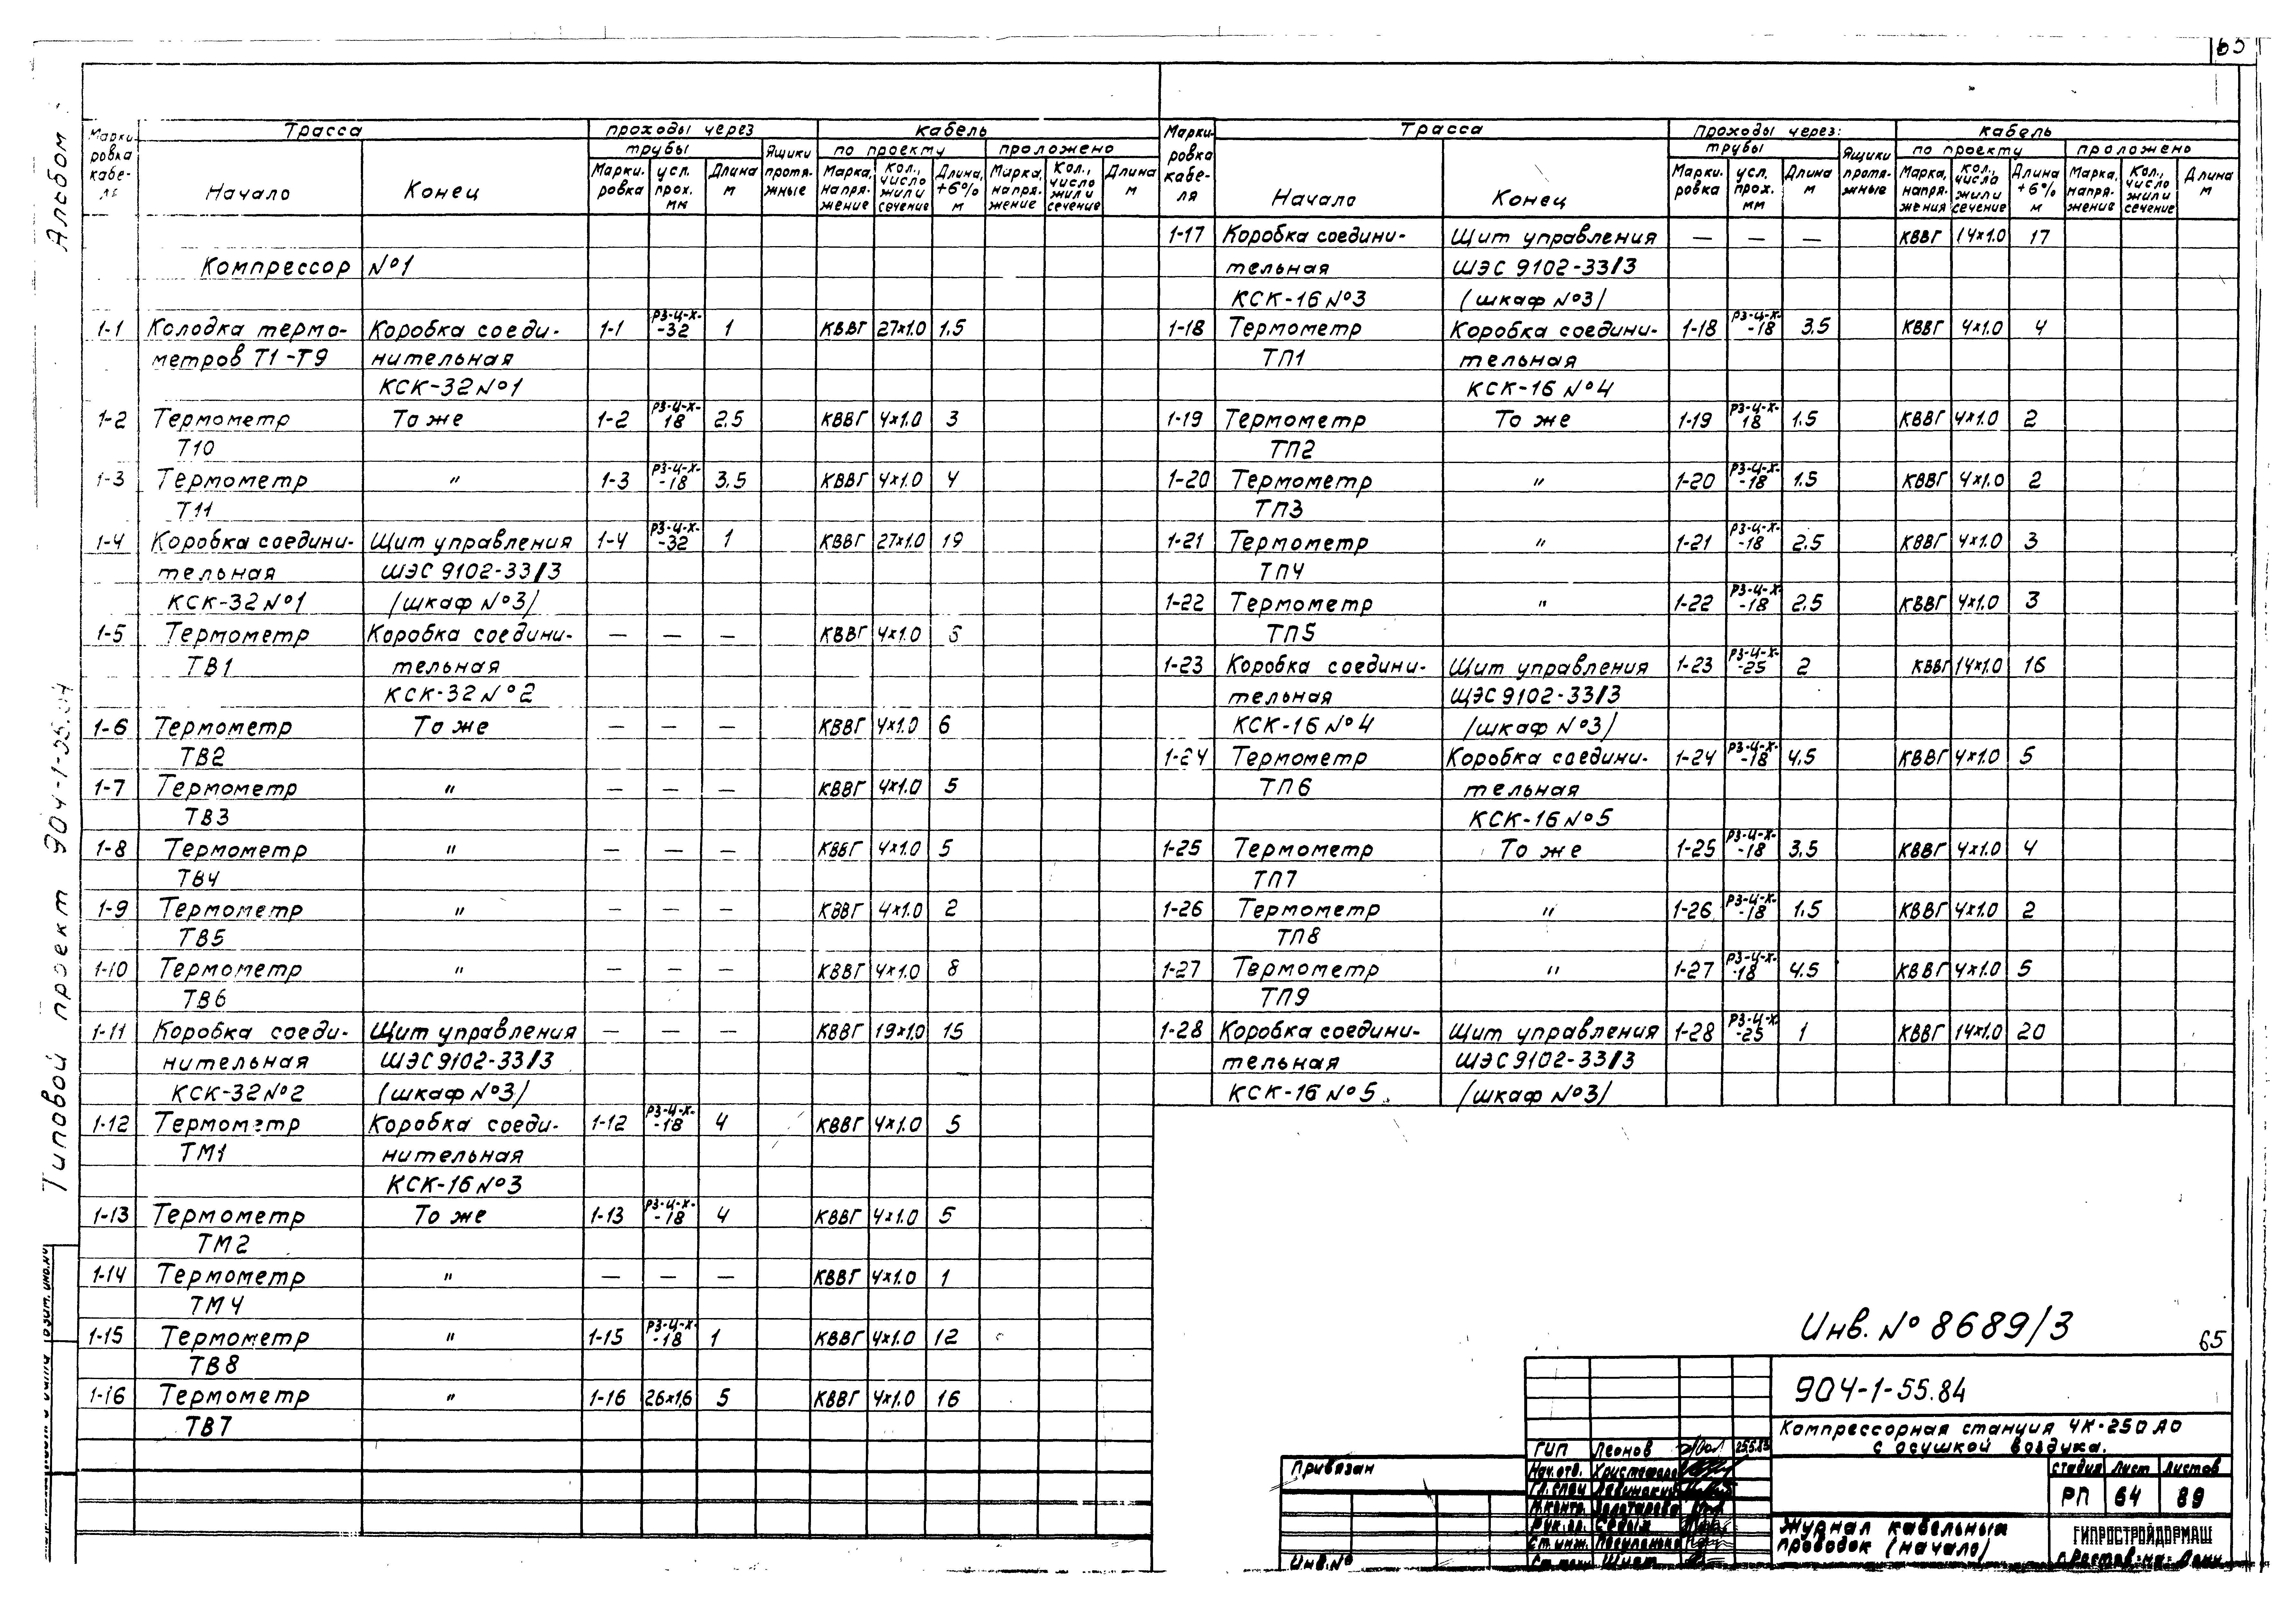 65
Альбом
Типовой проект 904-1-55.84
Марки-
ровка
кабе-
ля
Трасса
проходы через
кабель
трубы
Ящики
протя-
жные
по проекту
проложено
Начало
Конец
Марки-
ровка
усл.
прох.
мм
Длина
м
Марка,
напря-
жение
Кол.,
число
жил и
сечение
Длина,
+6%
м
Марка,
напря-
жение
Кол.,
число
жил и
сечение
Длина
м
Компрессор №1
1-1 Колодка термо- Коробка соеди- 1-1 РЗ-Ц-Х-32 1 КВВГ 27х1.0 1.5
метров Т1-Т9 нительная
КСК-32 №1
1-2 Термометр То же 1-2 РЗ-Ц-Х-18 2.5 КВВГ 4х1.0 3
Т10
1-3 Термометр " 1-3 РЗ-Ц-Х-18 3.5 КВВГ 4х1.0 4
Т11
1-4 Коробка соедини- Щит управления 1-4 РЗ-Ц-Х-32 1 КВВГ 27х1.0 19
тельная ШЭС 9102-33/3
КСК-32 №1 /шкаф №3/
1-5 Термометр Коробка соедини- — — — КВВГ 4х1.0
ТВ1 тельная
КСК-32 №2
1-6 Термометр То же — — — КВВГ 4х1.0 6
ТВ2
1-7 Термометр " — — — КВВГ 4х1.0 5
ТВ3
1-8 Термометр " — — — КВВГ 4х1.0 5
ТВ4
1-9 Термометр " — — — КВВГ 4х1.0 2
ТВ5
1-10 Термометр " — — — КВВГ 4х1.0 8
ТВ6
1-11 Коробка соеди- Щит управления — — — КВВГ 19х1.0 15
нительная ШЭС 9102-33/3
КСК-32 №2 /шкаф №3/
1-12 Термометр Коробка соеди- 1-12 РЗ-Ц-Х-18 4 КВВГ 4х1.0 5
ТМ1 нительная
КСК-16 №3
1-13 Термометр То же 1-13 РЗ-Ц-Х-18 4 КВВГ 4х1.0 5
ТМ2
1-14 Термометр " — — — КВВГ 4х1.0 1
ТМ4
1-15 Термометр " 1-15 РЗ-Ц-Х-18 1 КВВГ 4х1.0 12
ТВ8
1-16 Термометр " 1-16 26х1,6 5 КВВГ 4х1.0 16
ТВ7
Марки-
ровка
кабе-
ля
Трасса
Проходы через:
кабель
трубы
Ящики
протя-
жные
по проекту
проложено
Начало
Конец
Марки-
ровка
усл.
прох.
мм
Длина
м
Марка,
напря-
жения
кол.,
число
жил и
сечение
Длина
+6%
м
Марка,
напря-
жение
Кол.,
число
жил и
сечение
Длина
м
1-17 Коробка соедини- Щит управления — — — КВВГ 14х1.0 17
тельная ШЭС 9102-33/3
КСК-16 №3 /шкаф №3/
1-18 Термометр Коробка соедини- 1-18 РЗ-Ц-Х-18 3.5 КВВГ 4х1.0 4
ТП1 тельная
КСК-16 №4
1-19 Термометр То же 1-19 РЗ-Ц-Х-18 1.5 КВВГ 4х1.0 2
ТП2
1-20 Термометр " 1-20 РЗ-Ц-Х-18 1.5 КВВГ 4х1.0 2
ТП3
1-21 Термометр " 1-21 РЗ-Ц-Х-18 2.5 КВВГ 4х1.0 3
ТП4
1-22 Термометр " 1-22 РЗ-Ц-Х-18 2.5 КВВГ 4х1.0 3
ТП5
1-23 Коробка соедини- Щит управления 1-23 РЗ-Ц-Х-25 2 КВВГ 14х1.0 16
тельная ЩЭС 9102-33/3
КСК-16 №4 /шкаф №3/
1-24 Термометр Коробка соедини- 1-24 РЗ-Ц-Х-18 4.5 КВВГ 4х1.0 5
ТП6 тельная
КСК-16 №5
1-25 Термометр То же 1-25 РЗ-Ц-Х-18 3.5 КВВГ 4х1.0 4
ТП7
1-26 Термометр " 1-26 РЗ-Ц-Х-18 1.5 КВВГ 4х1.0 2
ТП8
1-27 Термометр " 1-27 РЗ-Ц-Х-18 4.5 КВВГ 4х1.0 5
ТП9
1-28 Коробка соедини- Щит управления 1-28 РЗ-Ц-Х-25 1 КВВГ 14х1.0 20
тельная ШЭС 9102-33/3
КСК-16 №5 /шкаф №3/
Инв. № 8689/3
65
904-1-55.84
Компрессорная станция 4К-250 АО
с осушкой воздуха.
Привязан
Инв.№
ГИП Леонов 25.5.83
Нач.отд.
Гл.спец
Н.контр. Золотарева
Рук.гр. Седых
Ст.инж.
Ст.техн.
стадия Лист Листов
РП 64 89
Журнал кабельных
проводок (начало)
ГИПРОСТРОЙДОРМАШ
г. Ростов-на-Дону